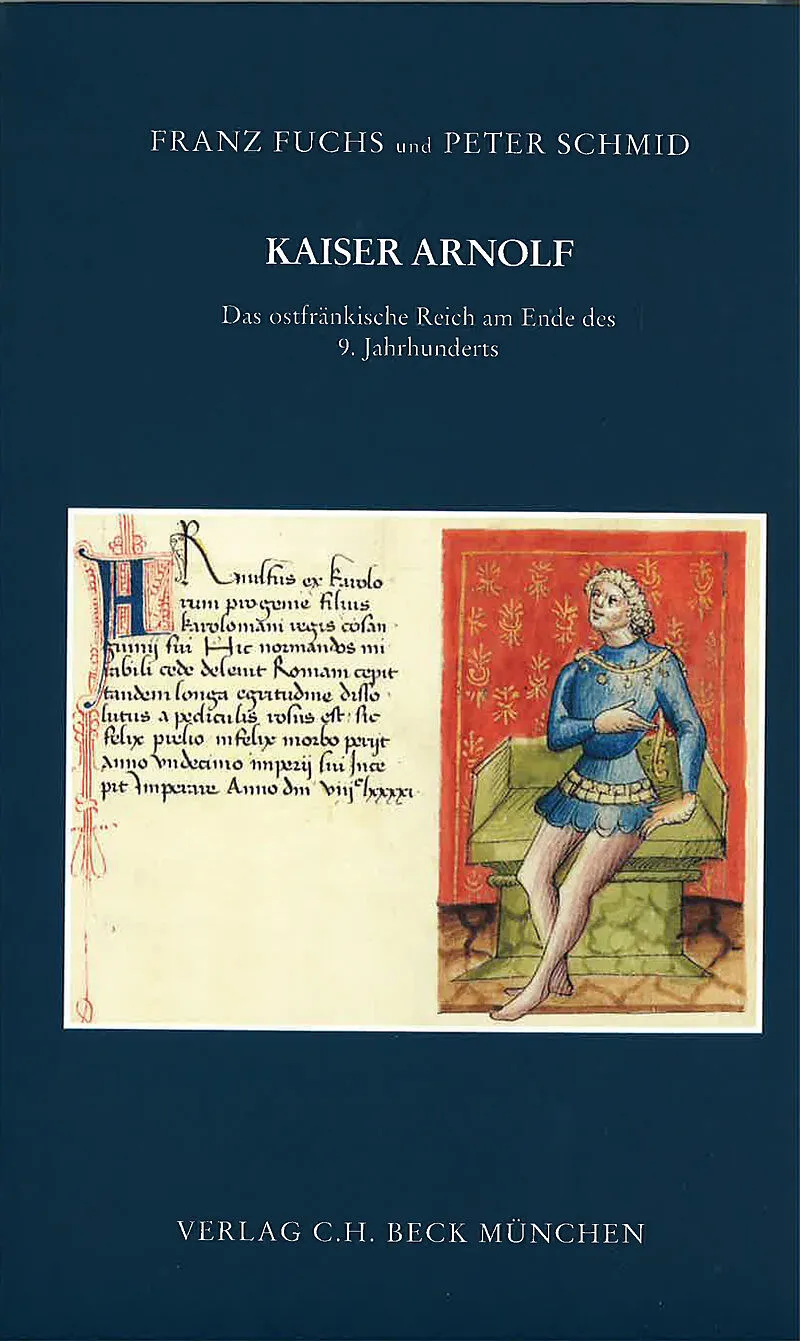 FRANZ FUCHS und PETER SCHMID
KAISER ARNOLF
Das ostfränkische Reich am Ende des
9. Jahrhunderts
ARnulfus ex karolo
rum progenie filius
karolomani regis cosan
guinij sui Hic normandos mi
rabili cede deleuit Romam cepit
tandem longa egritudine disso
lutus a pediculis rosus est sic
felix prelio infelix morbo perijt
Anno vndecimo imperij sui Ince
pit Imperare Anno dm viijc lxxxxi
VERLAG C.H. BECK MÜNCHEN